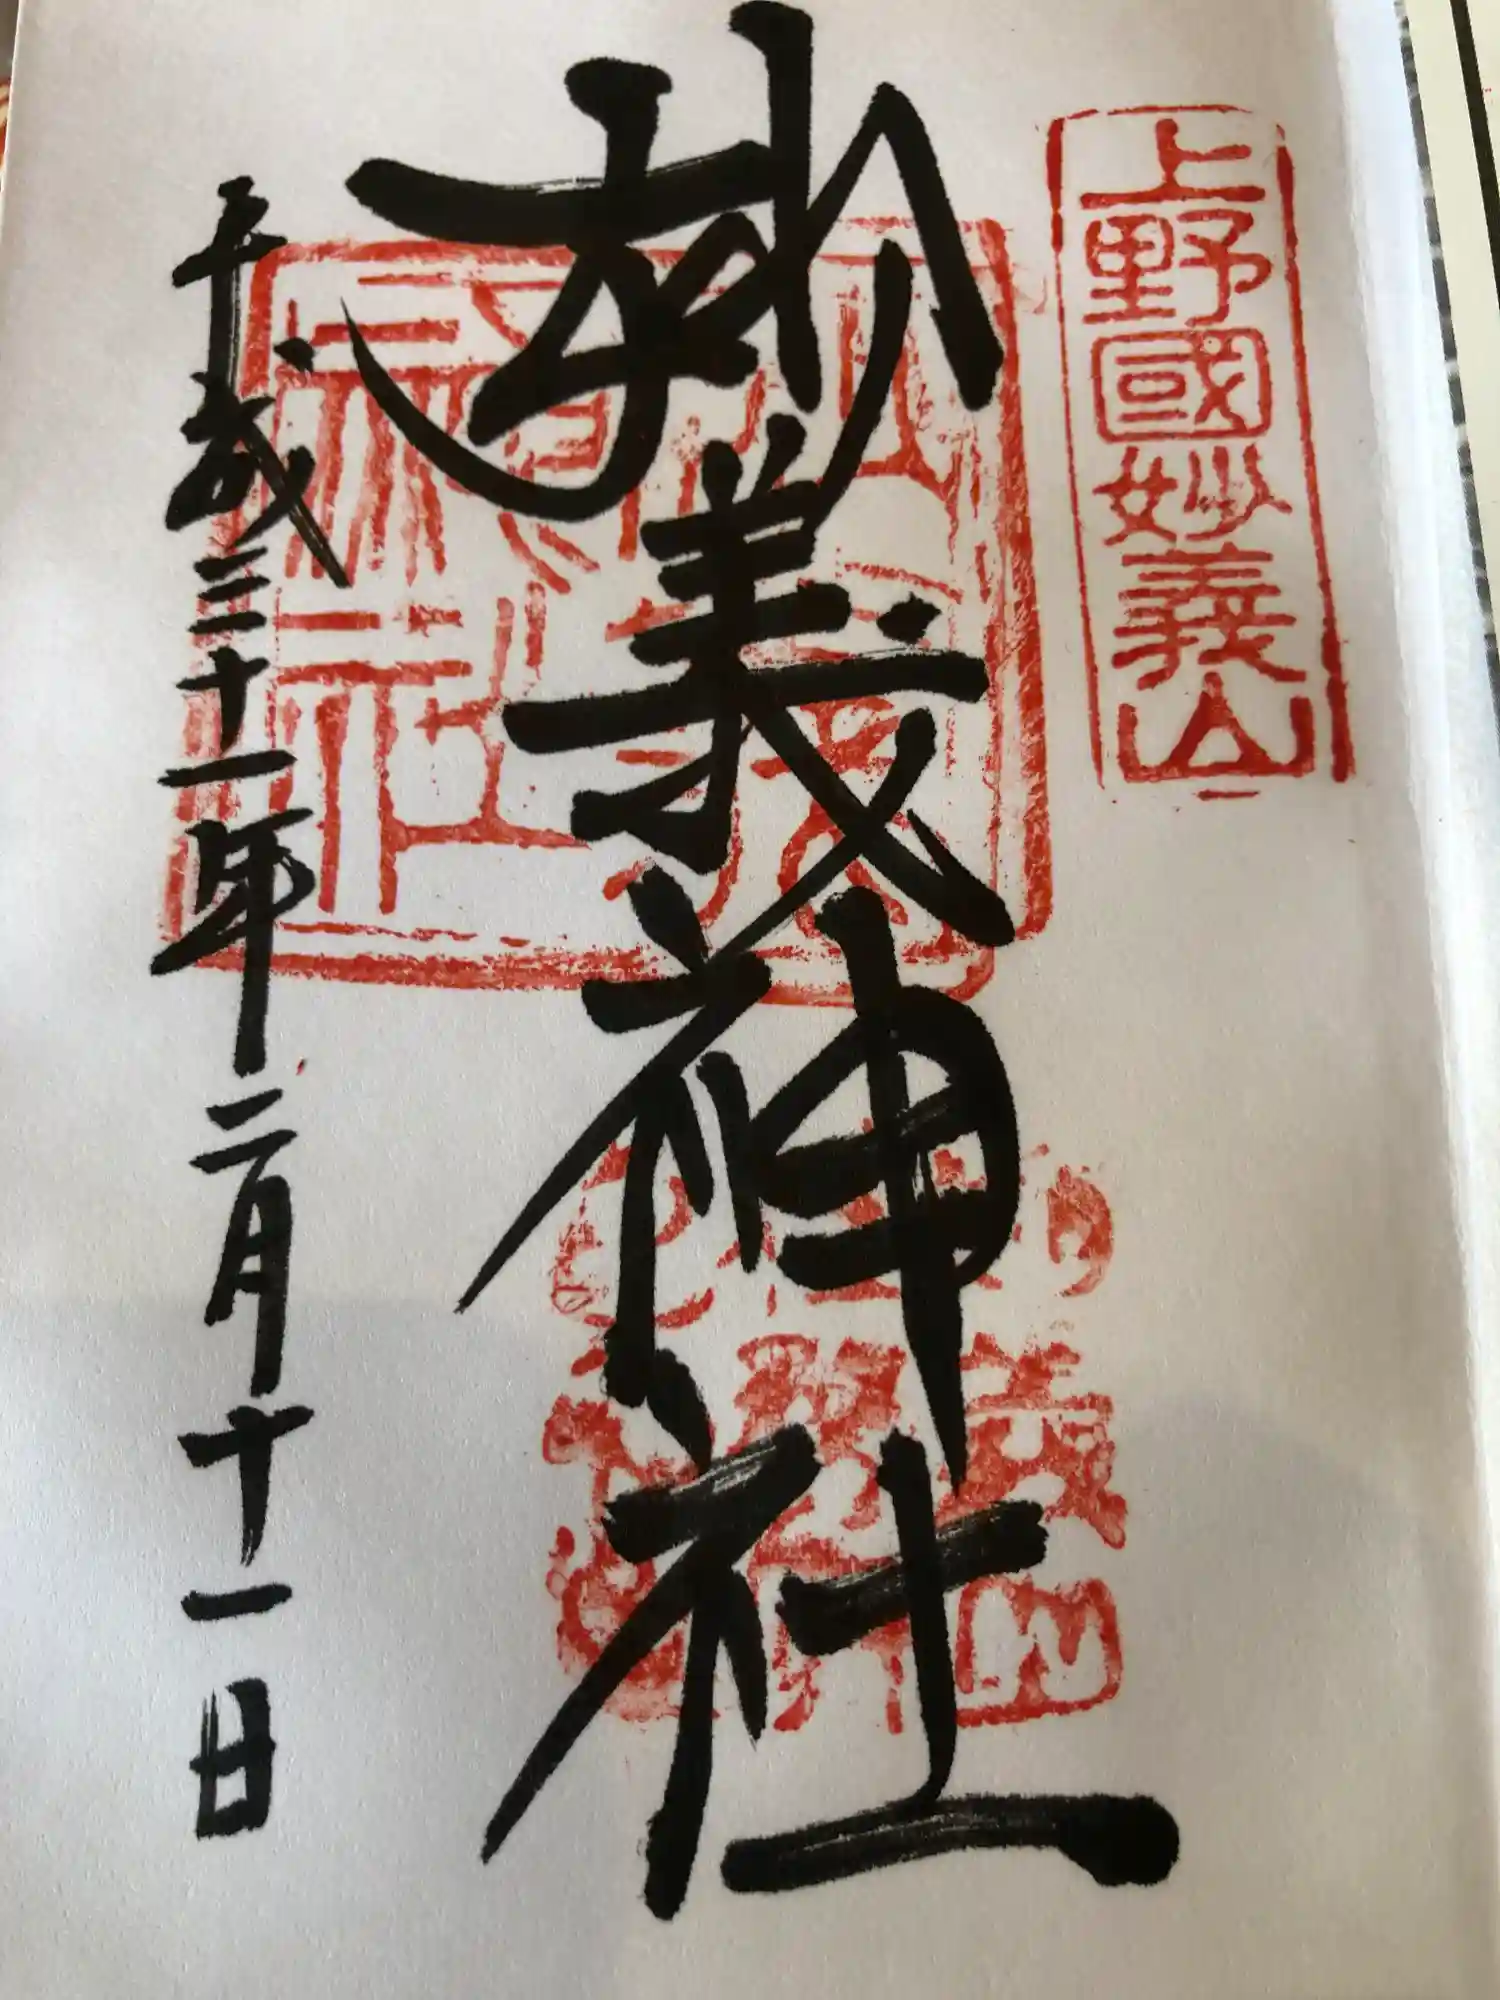 上野國妙義山
妙義神社
平成三十一年二月十一日